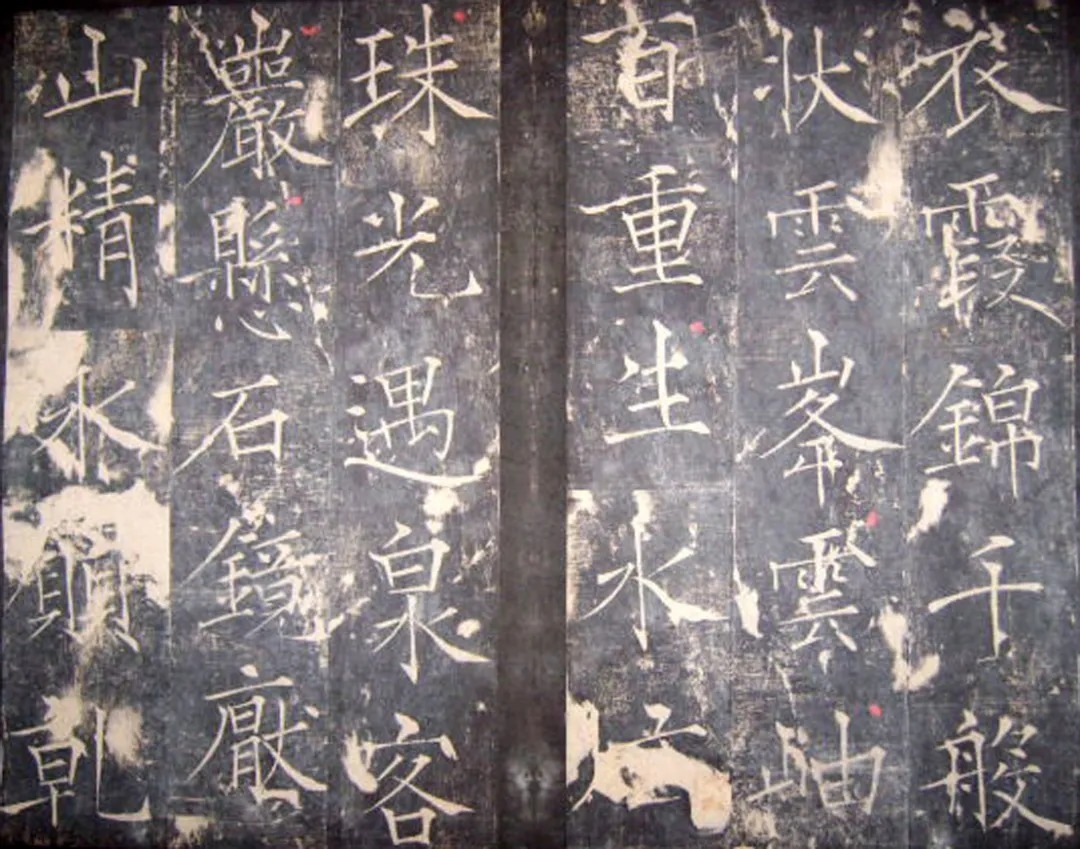 衣霞錦千般
状雲峯雲岫
百重生水炫
珠光遇泉客
巖懸石鏡厭
山精永願乾